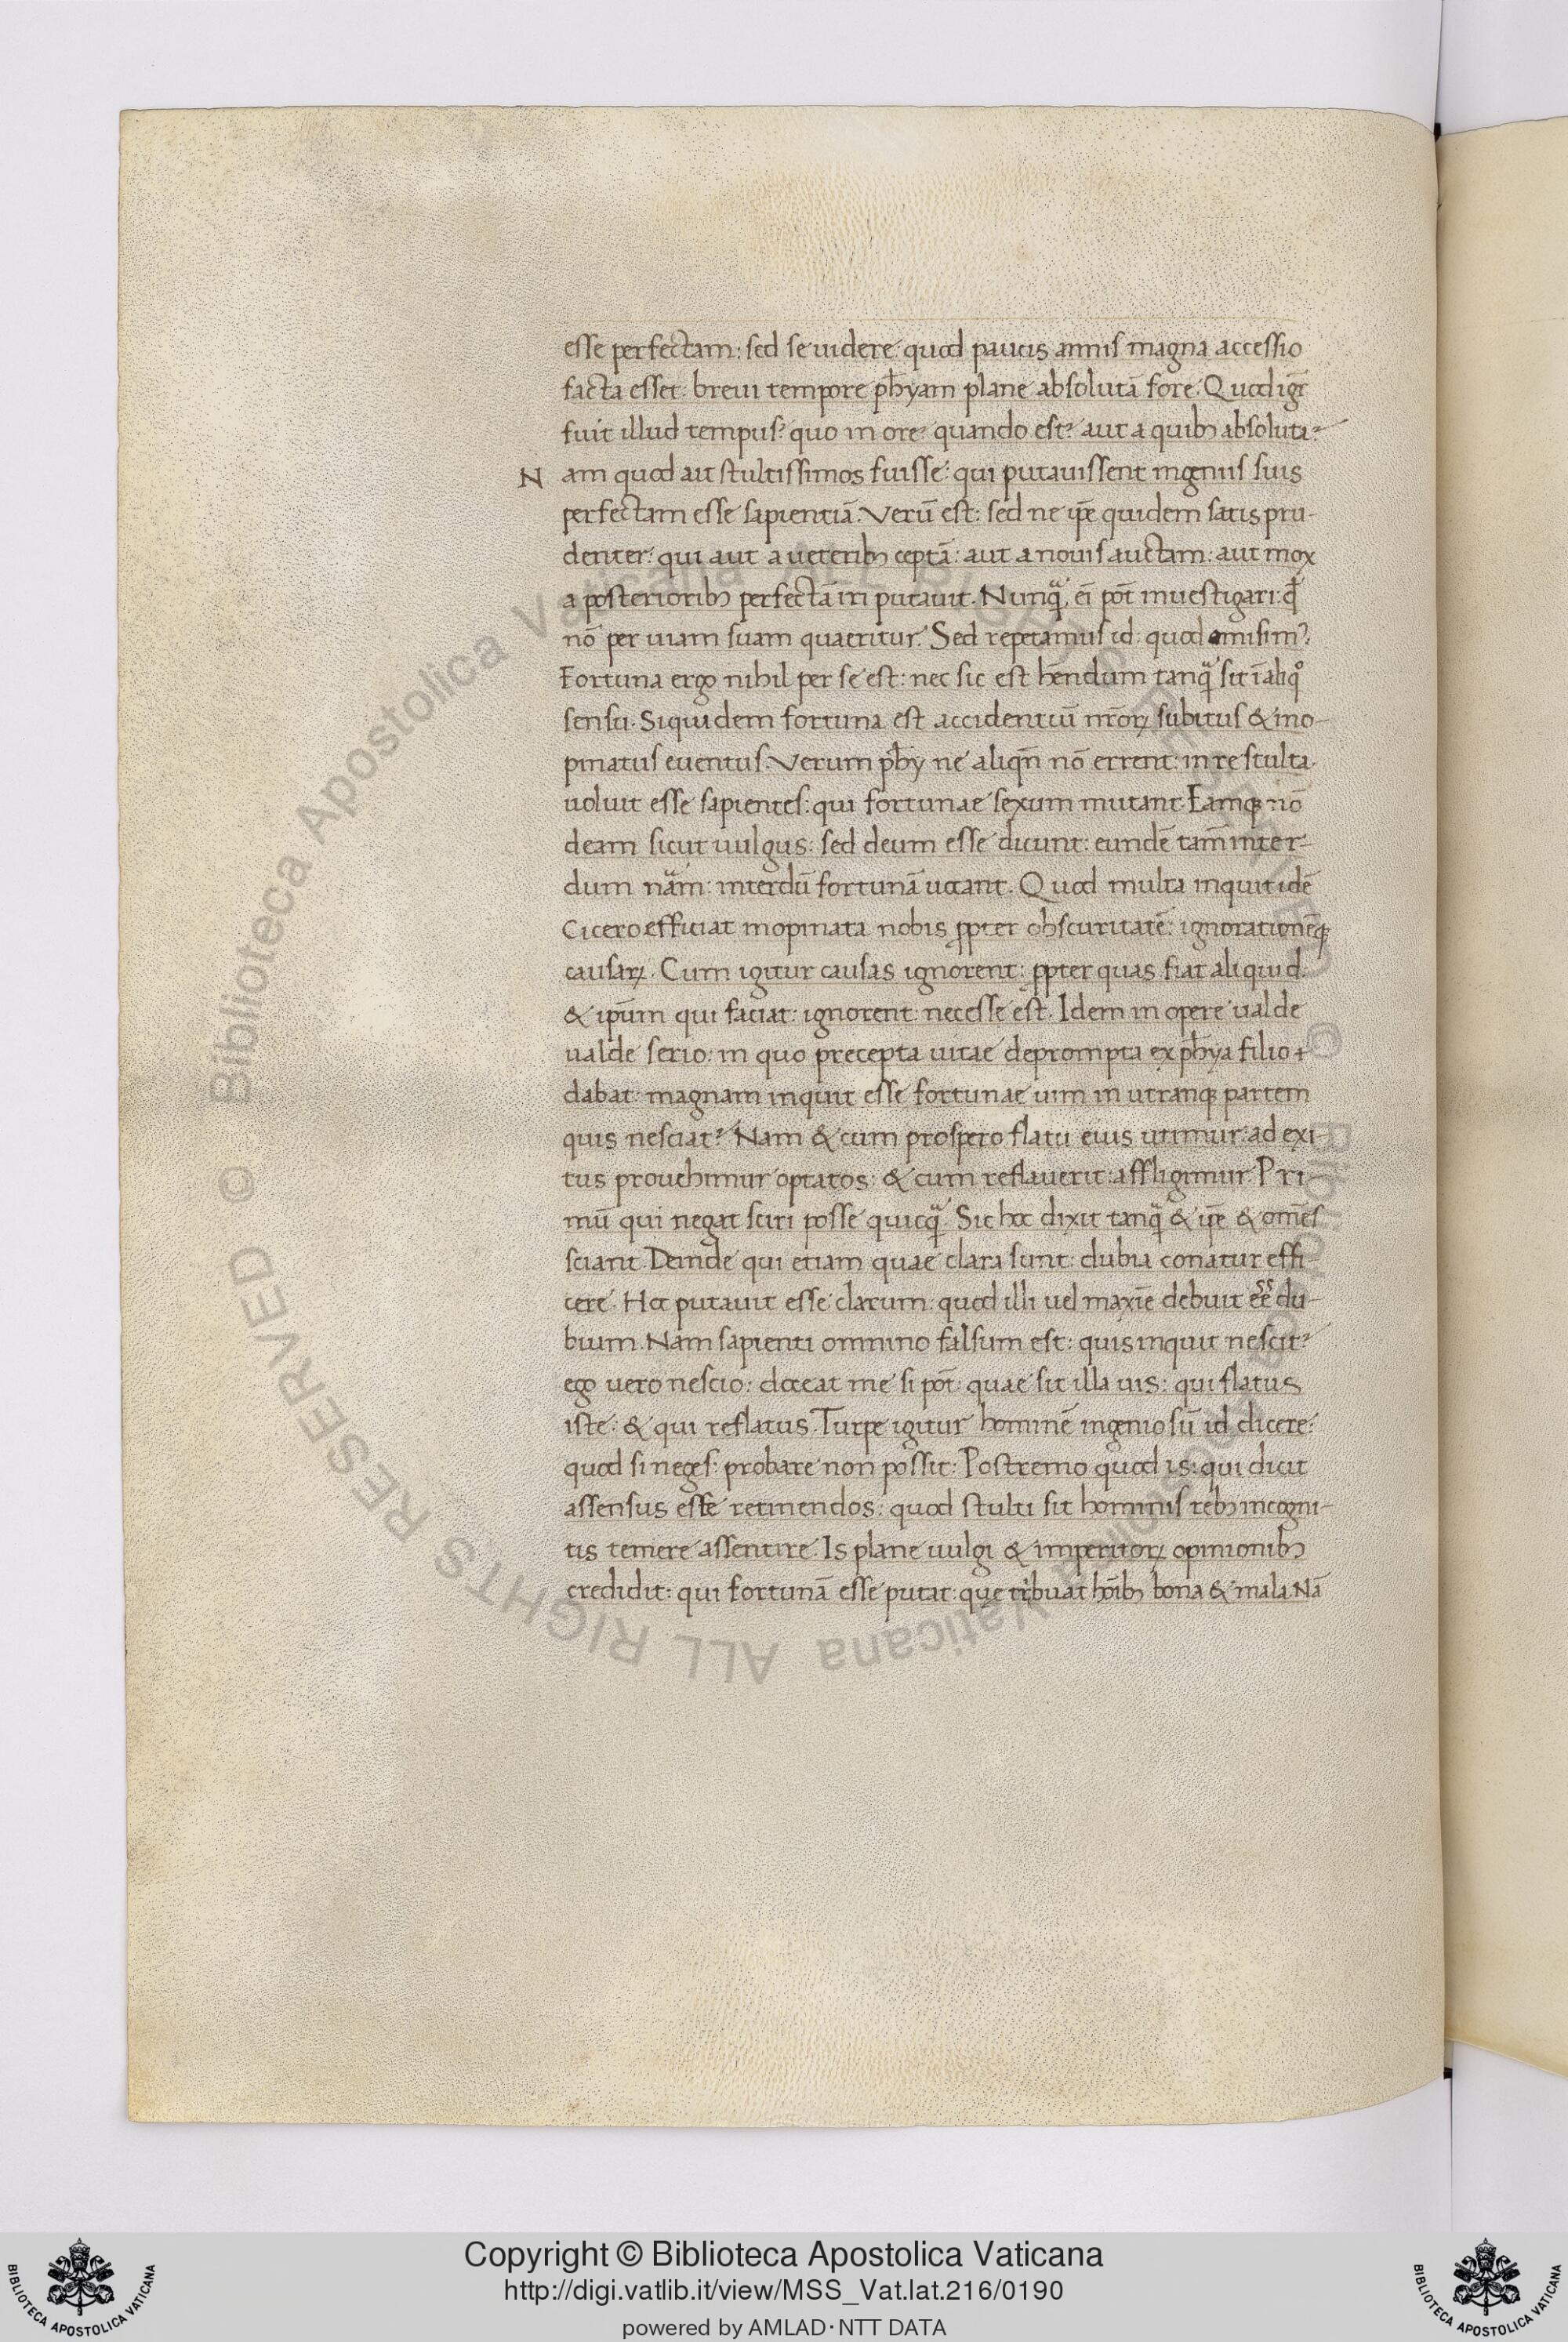 esse perfectam: sed se uidere: quod paucis annis magna accessio
facta esset: breui tempore phyam plane absolutā fore. Quod igr̄
fuit illud tempus? quo in ore? quando est? aut a quibꝫ absoluta?
Nam quod ait stultissimos fuisse: qui putauissent ingeniis suis
perfectam esse sapientiā. Verū est: sed ne ip̄e quidem satis pru-
denter: qui aut a ueteribꝫ ceptā: aut a nouis auctam: aut mox
a posterioribꝫ perfectā iri putauit. Nunqᷓ ei pōt inuestigari: qd̄
nō per uiam suam quaeritur. Sed repetamus id: quod omisimꝰ:
Fortuna ergo nihil per se est: nec sic est hēndum tanqᷓ sit ī aliqͦ
sensu. Siquidem fortuna est accidentiū nr̄oꝝ subitus & ino-
pinatus euentus. Verum phy ne aliqn̄ nō errent: in re stulta
uoluit esse sapientes: qui fortunae sexum mutant. Eamqꝫ nō
deam sicut uulgus: sed deum esse dicunt: eundē tam̄ inter-
dum nāᷓm: interdū fortunā uocant. Quod multa inquit idē
Cicero efficiat inopinata nobis ꝓpter obscuritatē: ignorationēqꝫ
causaꝝ. Cum igitur causas ignorent: ꝓpter quas fiat aliquid:
& ip̄um qui faciat: ignorent: necesse est. Idem in opere ualde
ualde serio: in quo precepta uitae deprompta ex phya filio +
dabat: magnam inquit esse fortunae uim in utranqꝫ partem
quis nesciat? Nam & cum prospero flatu eius utimur: ad exi-
tus prouehimur optatos: & cum reflauerit: affligimur. Pri-
mū qui negat sciri posse quicqᷓ. Sic hoc dixit tanqᷓ & ip̄e & om̄es
sciant. Deinde qui etiam quae clara sunt: dubia conatur effi-
cere. Hoc putauit esse clarum: quod illi uel maxīe debuit eē du-
bium. Nam sapienti omnino falsum est: quis inquit nescit?
ego uero nescio: doceat me si pōt: quae sit illa uis: qui flatus
iste: & qui reflatus. Turpe igitur hominē ingeniosū id dicere:
quod si neges: probare non possit: Postremo quod is: qui dicit
assensus esse retinendos: quod stulti sit hominis rebꝫ incogni-
tis temere assentire. Is plane uulgi & imperitoꝝ opinionibꝫ
credidit: qui fortunā esse putat: que tribuat hōibꝫ bona & mala. Nā
Copyright © Biblioteca Apostolica Vaticana
http://digi.vatlib.it/view/MSS_Vat.lat.216/0190
powered by AMLAD·NTT DATA
BIBLIOTECA APOSTOLICA VATICANA
BIBLIOTECA APOSTOLICA VATICANA
© Biblioteca Apostolica Vaticana ALL RIGHTS RESERVED © Biblioteca Apostolica Vaticana ALL RIGHTS RESERVED